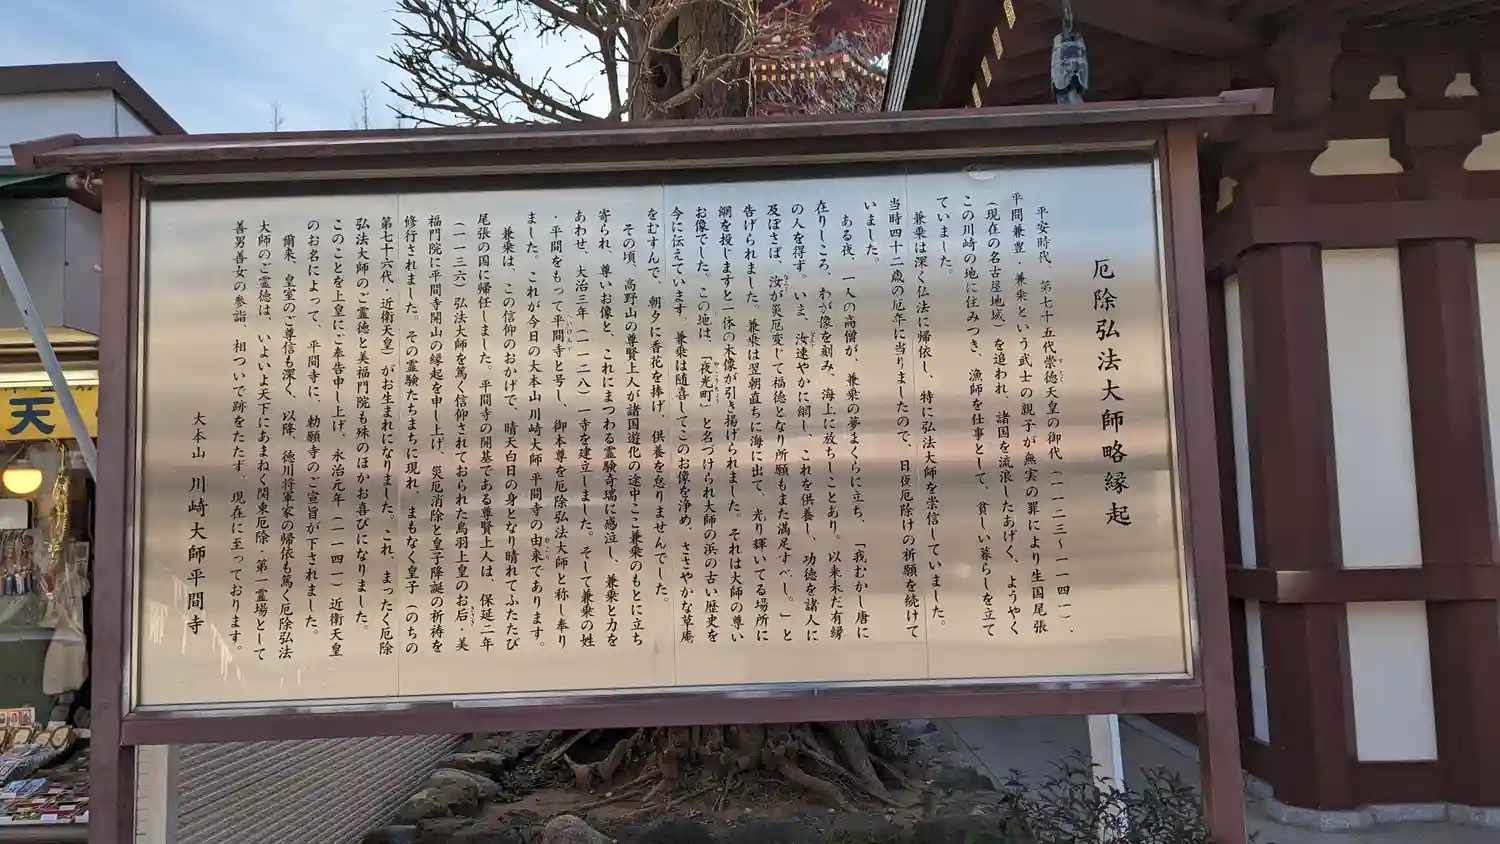 厄除弘法大師略縁起
平安時代、第七十五代崇徳天皇の御代(一一二三〜一一四一)、
平間兼豊・兼乗という武士の親子が無実の罪により生国尾張
(現在の名古屋地域)を追われ、諸国を流浪したあげく、ようやく
この川崎の地に住みつき、漁師を仕事として、貧しい暮らしを立て
ていました。
兼乗は深く仏法に帰依し、特に弘法大師を崇信していました。
当時四十二歳の厄年に当りましたので、日夜厄除けの祈願を続けて
いました。
ある夜、一人の高僧が、兼乗の夢まくらに立ち、「我むかし唐に
在りしころ、わが像を刻み、海上に放ちしことあり。以来未だ有縁
の人を得ず。いま、汝速やかに網し、これを供養し、功徳を諸人に
及ぼさば、汝が災厄変じて福徳となり所願もまた満足すべし。」と
告げられました。兼乗は翌朝直ちに海に出て、光り輝いてる場所に
網を投じますと一体の木像が引き揚げられました。それは大師の尊い
お像でした。この地は、「夜光町」と名づけられ大師の浜の古い歴史を
今に伝えています。兼乗は随喜してこのお像を浄め、ささやかな草庵
をむすんで、朝夕に香花を捧げ、供養を怠りませんでした。
その頃、高野山の尊賢上人が諸国遊化の途中ここ兼乗のもとに立ち
寄られ、尊いお像と、これにまつわる霊験奇瑞に感泣し、兼乗と力を
あわせ、大治三年(一一二八)一寺を建立しました。そして兼乗の姓
・平間をもって平間寺と号し、御本尊を厄除弘法大師と称し奉り
ました。これが今日の大本山川崎大師平間寺の由来であります。
兼乗は、この信仰のおかげで、晴天白日の身となり晴れてふたたび
尾張の国に帰任しました。平間寺の開基である尊賢上人は、保延二年
(一一三六)弘法大師を篤く信仰されておられた鳥羽上皇のお后・美
福門院に平間寺開山の縁起を申し上げ、災厄消除と皇子降誕の祈祷を
修行されました。その霊験たちまちに現れ、まもなく皇子(のちの
第七十六代・近衛天皇)がお生まれになりました。これ、まったく厄除
弘法大師のご霊徳と美福門院も殊のほかお喜びになりました。
このことを上皇にご奉告申し上げ、永治元年(一一四一)近衛天皇
のお名によって、平間寺に、勅願寺のご宣旨が下されました。
爾来、皇室のご尊信も深く、以降、徳川将軍家の帰依も篤く厄除弘法
大師のご霊徳は、いよいよ天下にあまねく関東厄除・第一霊場として
善男善女の参詣、相ついで跡をたたず、現在に至っております。
大本山 川崎大師平間寺
天